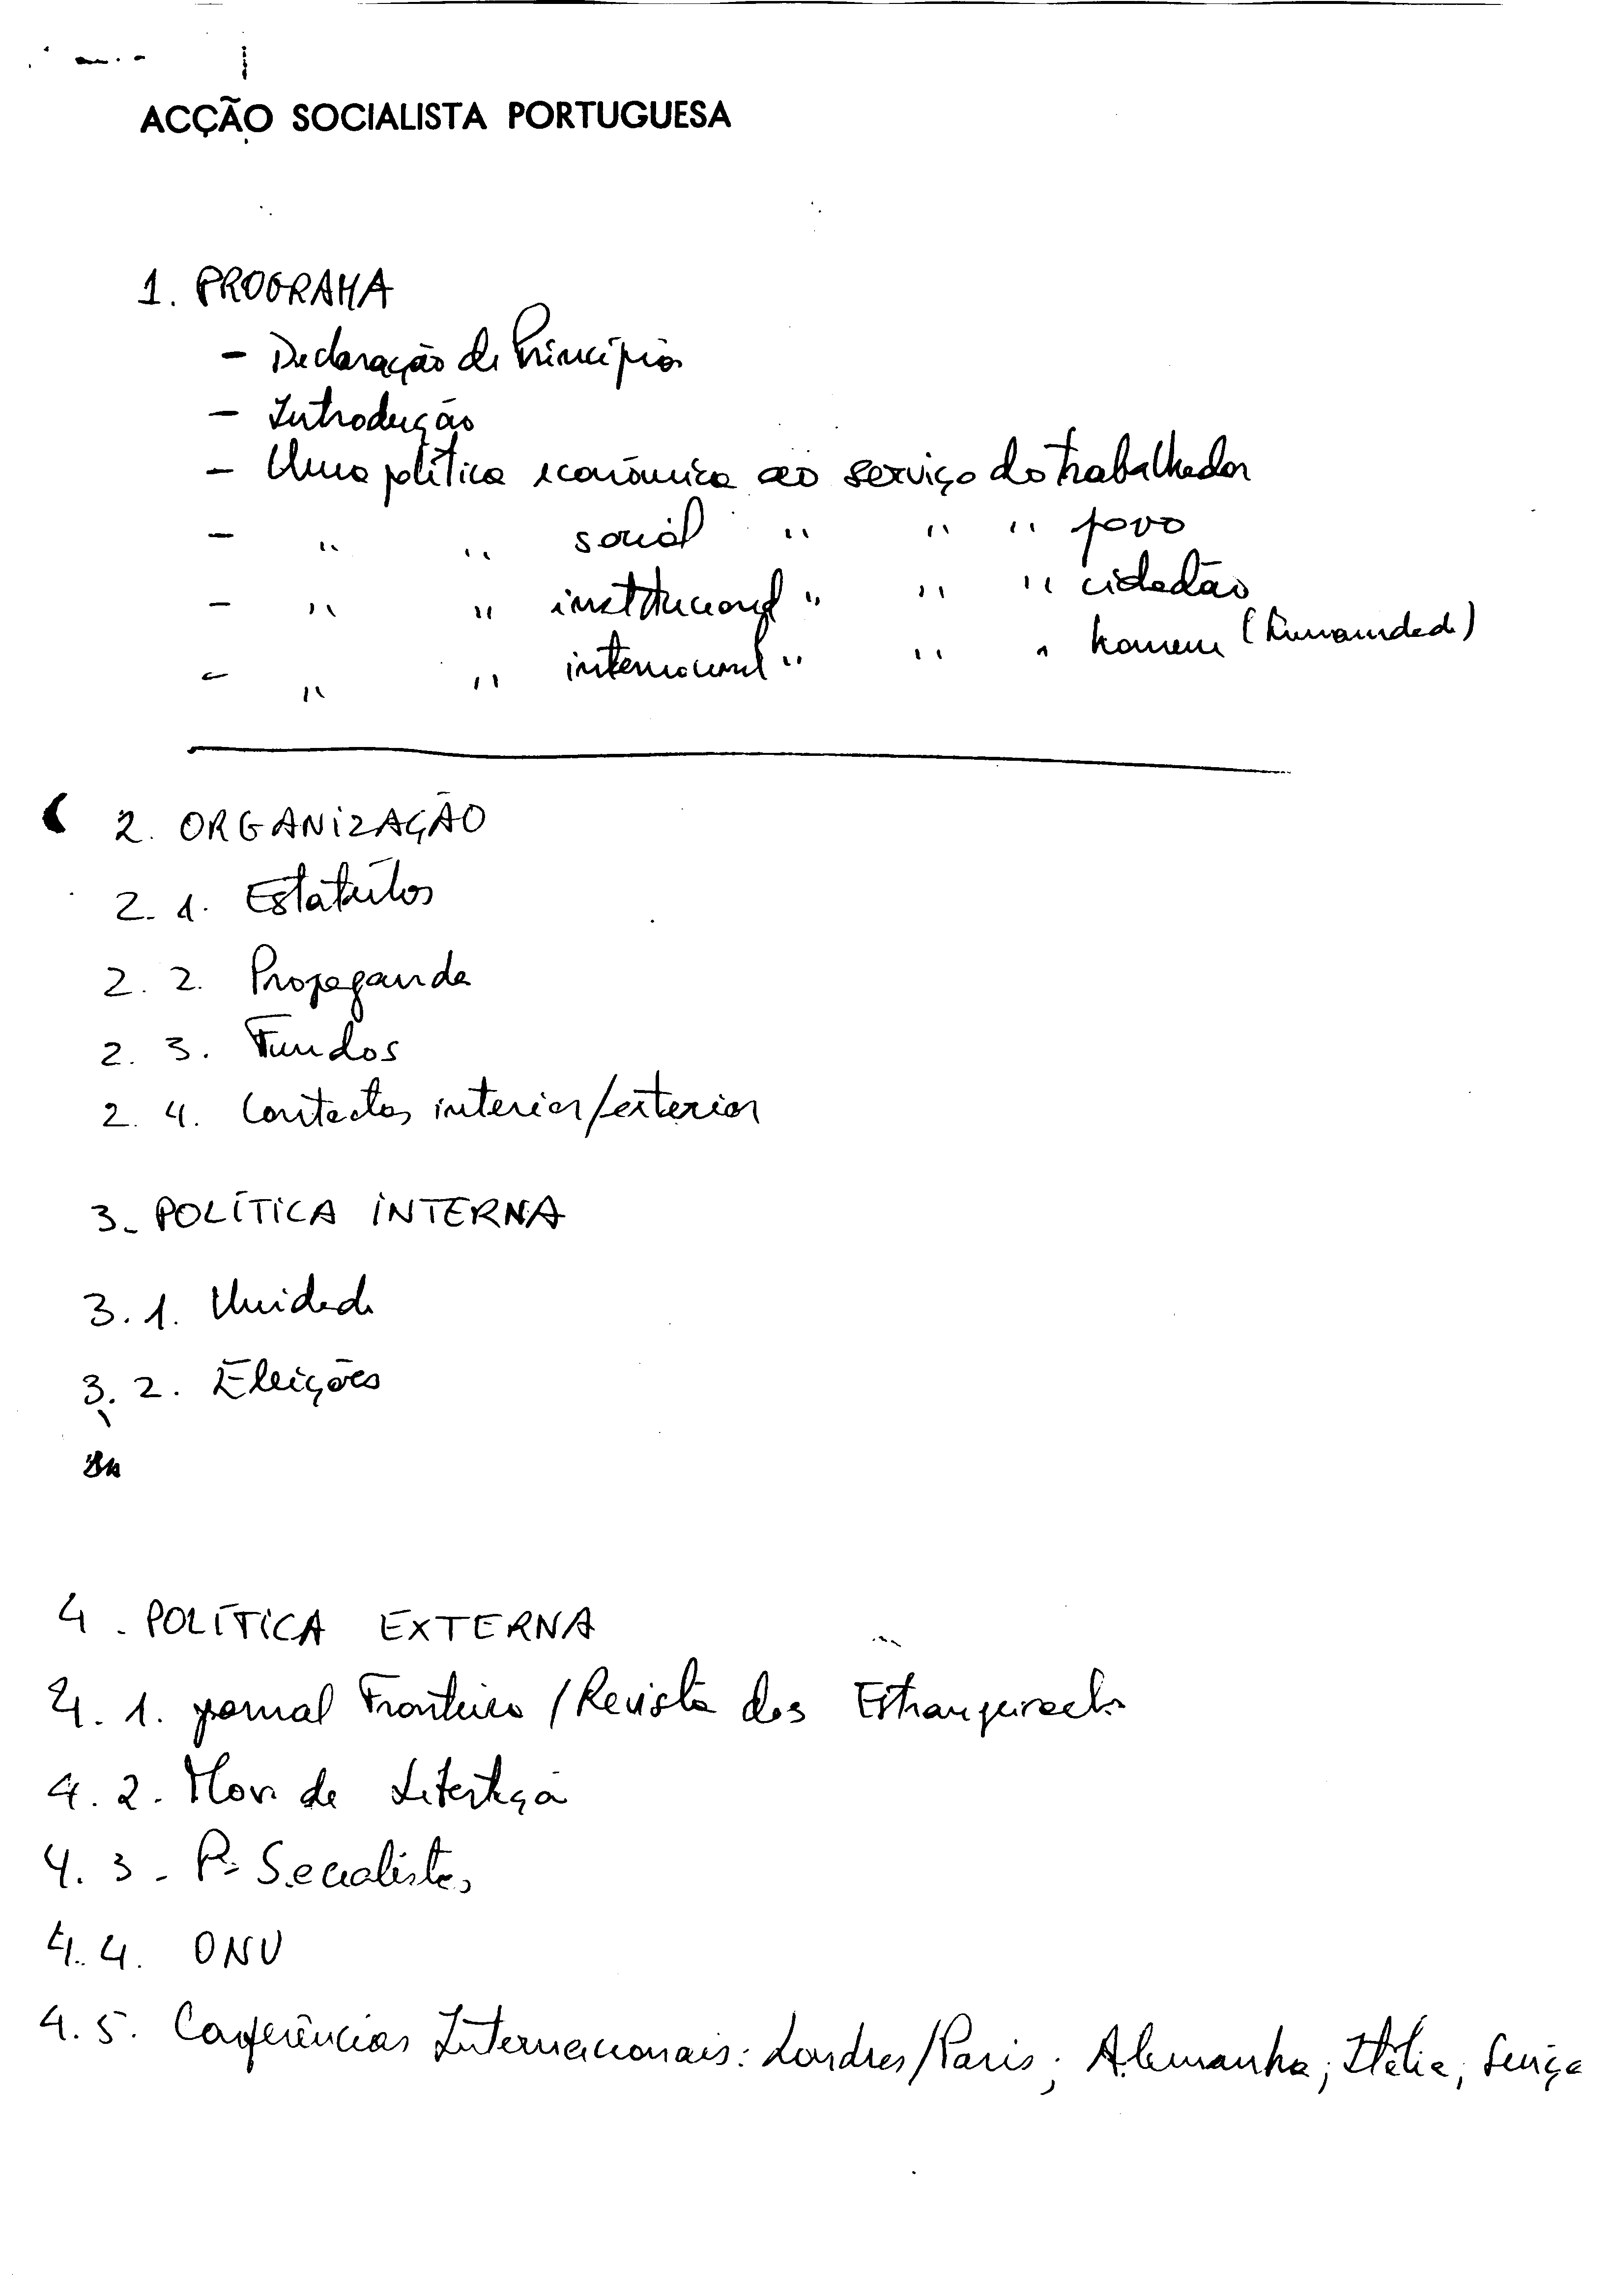 ACÇÃO SOCIALISTA PORTUGUESA
1. PROGRAMA
- Declaração de Princípios
- Introdução
- Uma política económica ao serviço do trabalhador
- " " social " " " povo
- " " institucional " " " cidadão
- " " internacional " " " homem (humanidade)
2. ORGANIZAÇÃO
2.1. Estatutos
2.2. Propaganda
2.3. Fundos
2.4. Contactos interior/exterior
3. POLÍTICA INTERNA
3.1. Unidade
3.2. Eleições
4. POLÍTICA EXTERNA
4.1. jornal Fronteira / Revista dos Estrangeirados
4.2. Mov. de Libertação
4.3. P. Socialistas
4.4. ONU
4.5. Conferências Internacionais: Londres/Paris; Alemanha; Itália; Suiça